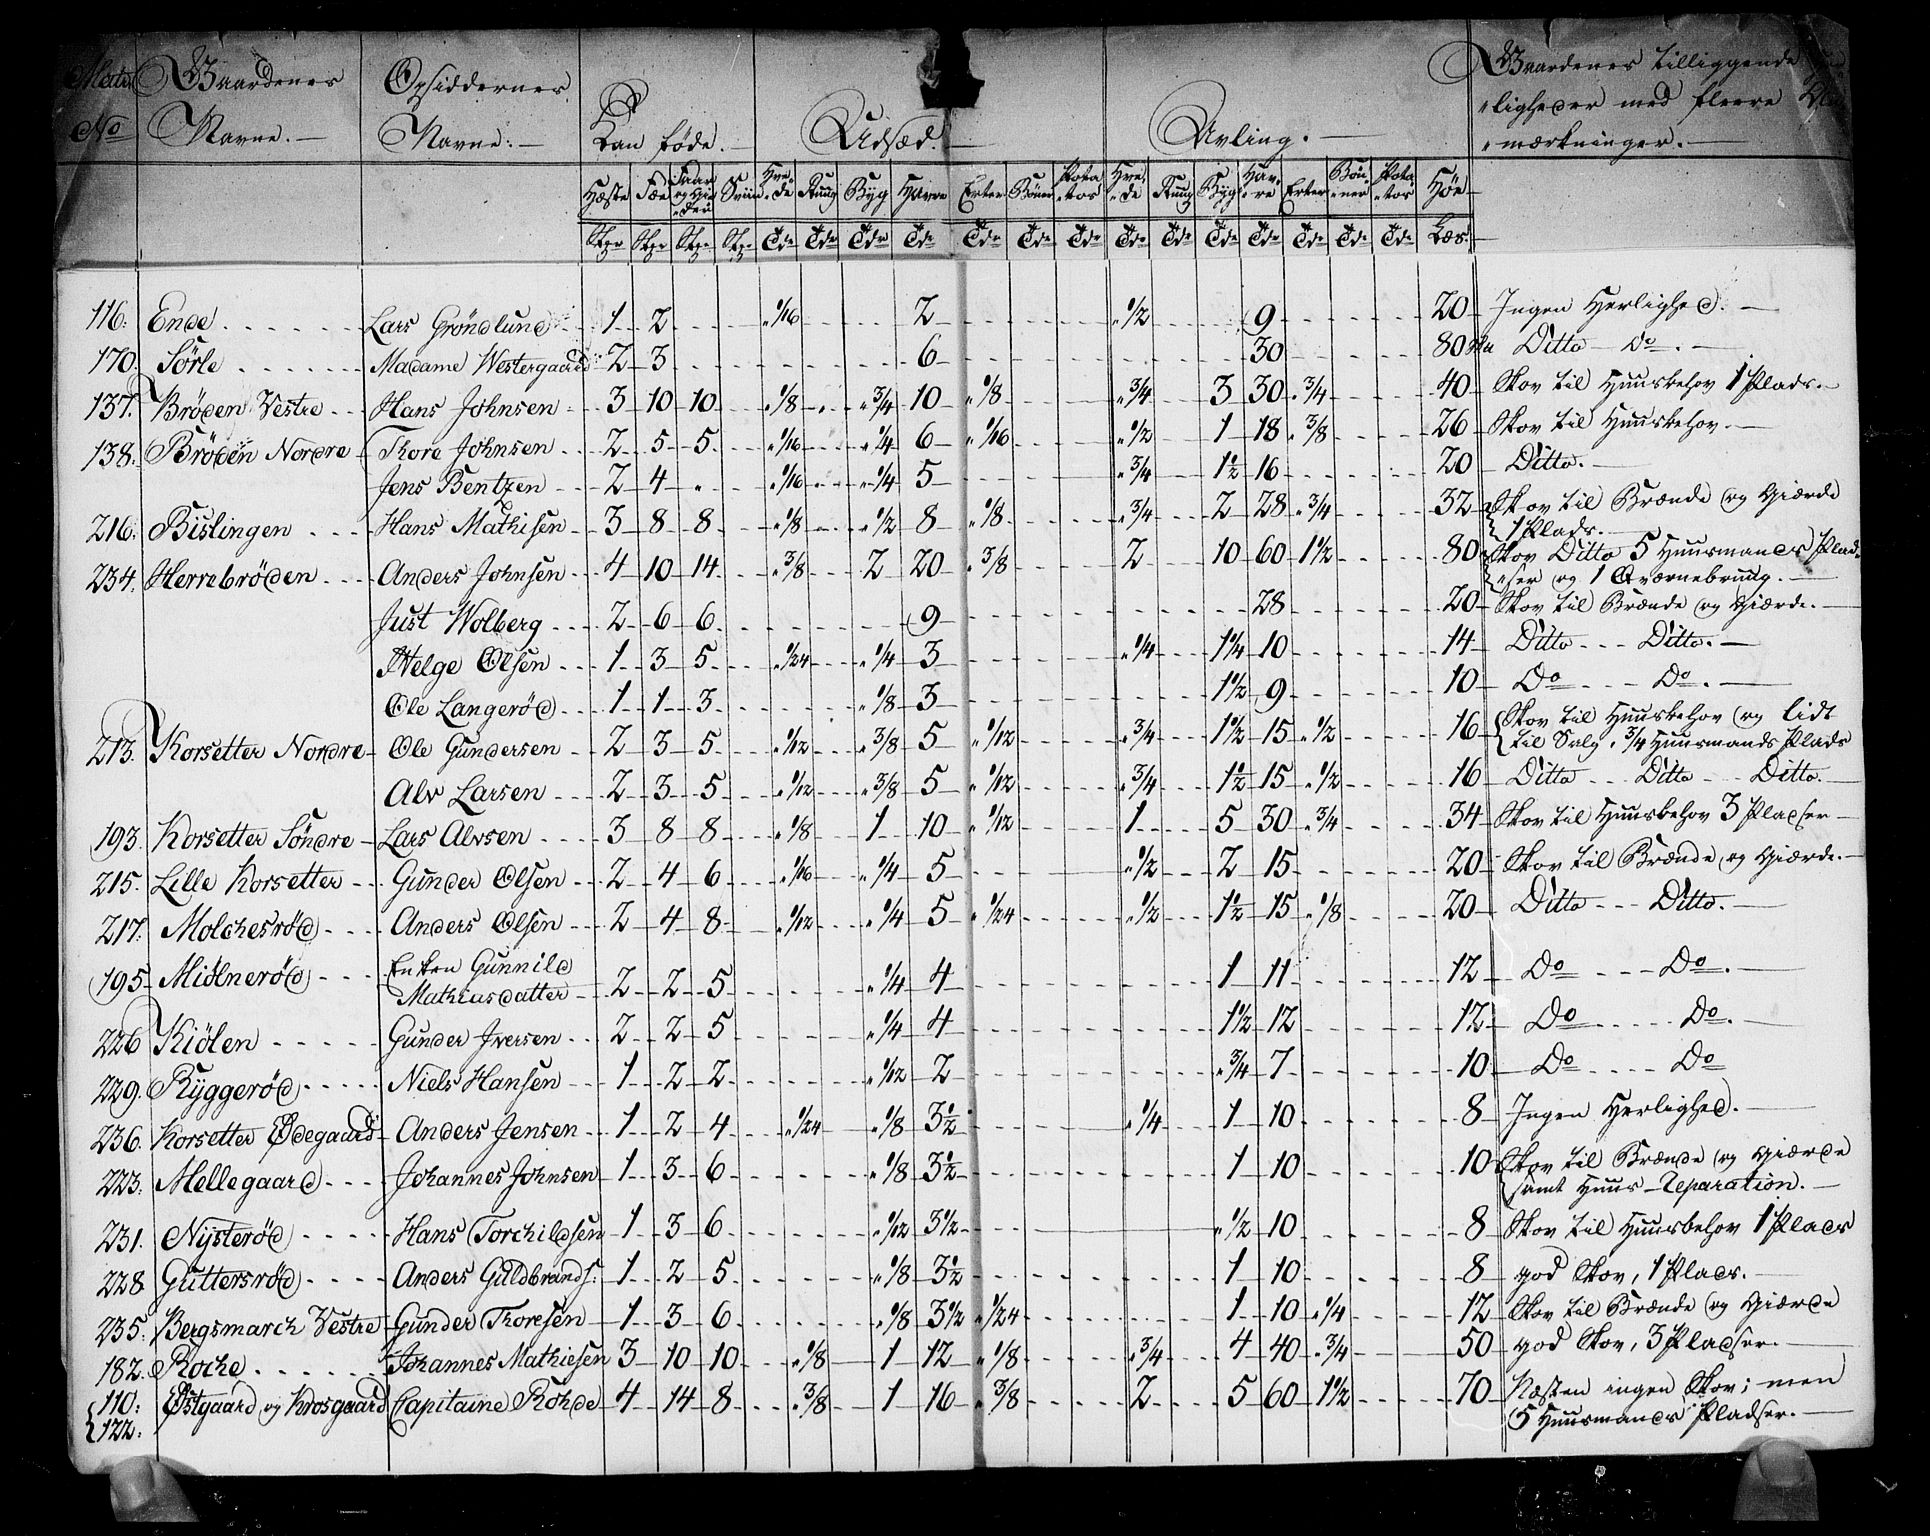 Matr No Gaardenes Navne. Opsiddernes Navne. Kan føde. Udsæd. Avling. Gaardenes tilliggende
ligheder med fleere
mærkninger.
Hæste Fæe Faar og Gieder Sviin Hvede Ruug Byg Havre Erter Bønner Potatos Hvede Ruug Byg Havre Erter Bønner Potatos Høe
Stkr Stkr Stkr Stkr Tdr Tdr Tdr Tdr Tdr Tdr Tdr Tdr Tdr Tdr Tdr Tdr Tdr Tdr Læs
116. Ende Lars Gröndlund 1 2 " 1/16 2 " 1/2 9 20 Ingen Herlighed.
170. Sörle Madame Westergaard 2 3 6 30 80 Ditto Do.
137. Bröden Vestre Hans Johnsen 3 10 10 " 1/8 " 3/4 10 " 1/8 " 3/4 3 30 " 3/4 40 Skov til Huusbehov 1 Plads.
138. Bröden Nordre Thore Johnsen 2 5 5 " 1/16 " 1/4 6 " 1/16 " 1/2 1 18 " 3/8 26 Skov til Huusbehov.
Jens Bentzen 2 4 " " 1/16 " 1/4 5 " 3/4 1 1/2 16 20 Ditto.
216. Bislingen Hans Mathisen 3 8 8 " 1/8 " 1/2 8 " 1/8 " 3/4 2 28 " 3/4 32 Skov til Brænde og Gierde
1 Plads.
234. Herrebröden Anders Johnsen 4 10 14 " 3/8 2 20 " 3/8 2 10 60 1 1/2 80 Skov Ditto 5 Huusmands Plad-
ser og 1 Qværnebruug.
Just Wolberg 2 6 6 9 28 20 Skov til Brænde og Gierde.
Helge Olsen 1 3 5 " 1/24 " 1/4 3 " 1/4 1 1/4 10 14 Ditto Ditto.
Ole Langeröd 1 1 3 " 1/8 3 1 1/2 9 10 Do Do.
213. Korsetter Nordre Ole Gundersen 2 3 5 " 1/12 " 3/8 5 " 1/12 " 3/4 1 1/2 15 " 1/2 16 Skov til Huusbehov og lidt
til Salg. 3/4 Huusmands Plads
Alv Larsen 2 3 5 " 1/12 " 3/8 5 " 1/12 " 3/4 1 1/2 15 " 1/2 16 Ditto Ditto Ditto.
193. Korsetter Söndre Lars Alvsen 3 8 8 " 1/8 1 10 " 1/12 1 5 30 " 3/4 34 Skov til Huusbehov 3 Pladser
215. Lille Korsetter Gunder Olsen 2 4 6 " 1/16 " 1/4 5 " 1/2 2 15 20 Skov til Brænde og Gierde.
217. Molchesröd Anders Olsen 2 4 8 " 1/12 " 1/4 5 " 1/24 " 1/2 1 1/2 15 " 1/8 20 Ditto Ditto.
195 Miölneröd Enken Gunnild
Mathiasdatter 2 2 5 " 1/4 4 1 11 12 Do Do.
226 Kiölen Gunder Iversen 2 2 5 " 1/4 4 1 1/2 12 12 Do Do.
229. Ryggeröd Niels Hansen 1 2 2 " 1/12 2 " 3/4 7 10 Do Do
236. Korsetter Ødegaard Anders Jensen 1 2 4 " 1/24 " 1/8 3 1/2 " 1/4 1 10 8 Ingen Herlighed.
223. Mellegaard Johannes Johnsen 1 3 6 " 1/8 3 1/2 1 10 10 Skov til Brænde og Gierde
samt Huus-Reparation.
231. Nÿsteröd Hans Torchildsen 1 3 6 " 1/12 3 1/2 " 1/2 10 8 Skov til Huusbehov 1 Plads
228 Guttersröd Anders Guldbrands: 1 2 5 " 1/8 3 1/2 1 10 8 god Skov, 1 Plads.
235. Bergsmarch Vestre Gunder Thoresen 1 3 6 " 1/8 3 1/2 " 1/24 1 10 " 1/4 12 Skov til Brænde og Gierde
182. Roche Johannes Mathiesen 3 10 10 " 1/8 1 12 " 1/8 " 3/4 4 40 " 3/4 50 god Skov, 3 Pladser.
110: 122: Østgaard og Krosgaard Capitaine Rohde 4 14 8 " 3/8 1 16 " 3/8 2 5 60 1 1/2 70 Næsten ingen Skov; men
5 Huusmands Pladser.